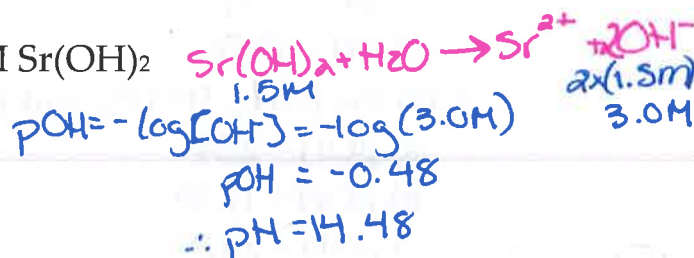 M Sr(OH)2 Sr(OH)2 + H2O → Sr2+ + 2OH-
1.5M 2x(1.5m)
pOH = -log[OH-] = -log(3.0M) 3.0M
pOH = -0.48
∴ pH = 14.48